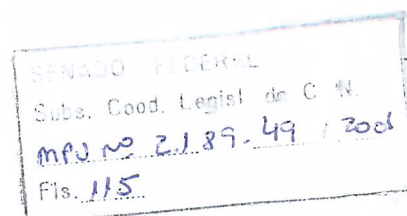 SENADO FEDERAL
Subs. Cood. Legisl de C. N.
MPV Nº 2.189-49 / 2001
Fls. 115